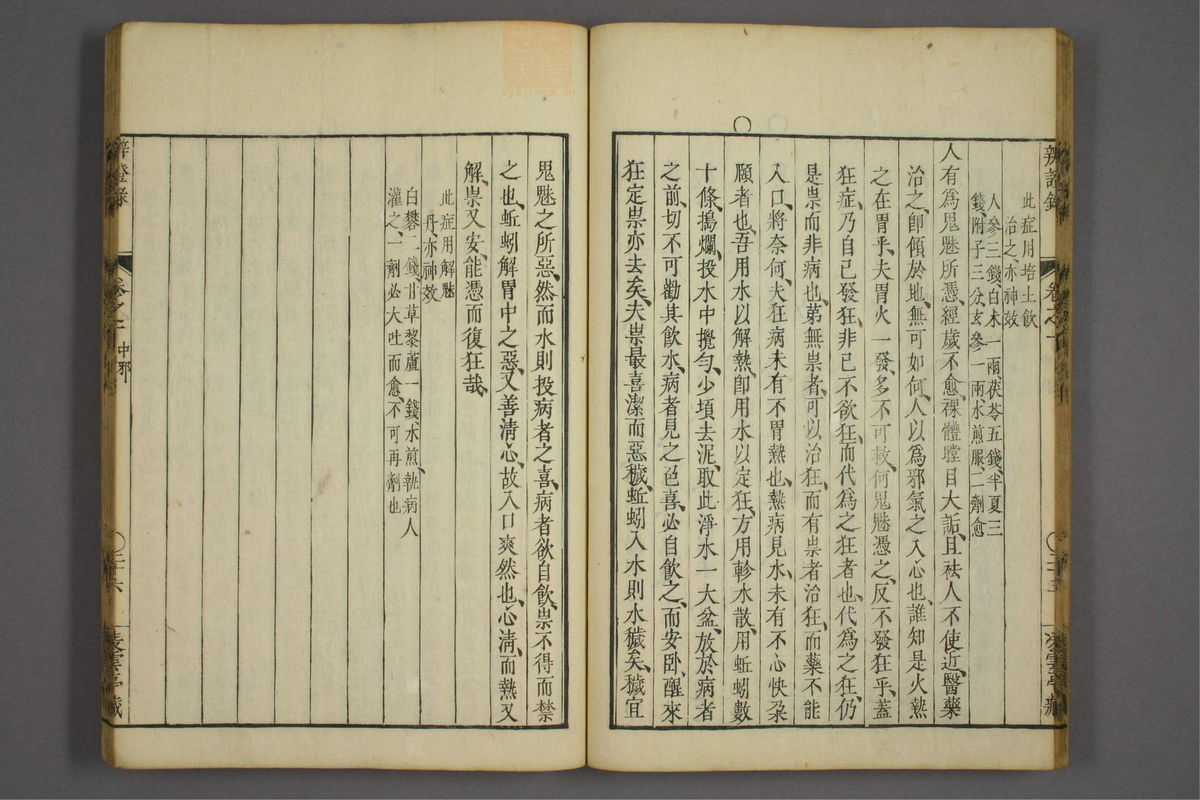 此症用培土飲
治之亦神效
人參三錢、白朮一兩茯苓五錢、半夏三
錢附子三分、玄參一兩水煎服、二劑愈
人有爲鬼魅所憑、經歲不愈、裸體瞠目大詬、且袪人不使近、醫藥
治之、卽傾於地、無可如何、人以爲邪氣之入心也、誰知是火熱
之在胃乎、夫胃火一發、多不可救、何鬼魅憑之、反不發狂乎、蓋
狂症、乃自己發狂、非已不欲狂、而代爲之狂者也、代爲之狂、仍
是祟而非病也、第無祟者、可以治狂、而有祟者治狂、而藥不能
入口、將奈何、夫狂病未有不胃熱也、熱病見水、未有不心快朶
頥者也、吾用水以解熱、卽用水以定狂、方用軫水散、用蚯蚓數
十條、搗爛、投水中攪勻、少頃去泥、取此淨水一大盆、放於病者
之前、切不可勸其飮水、病者見之色喜、必自飮之、而安卧、醒來
狂定祟亦去矣、夫祟最喜潔而惡穢、蚯蚓入水則水穢矣、穢宜
鬼魅之所惡、然而水則投病者之喜、病者欲自飮、祟不得而禁
之也、蚯蚓解胃中之惡、又善淸心、故入口爽然也、心淸、而熱又
解、祟又安、能憑而復狂哉、
此症用解魅
丹亦神效
白礬二錢、甘草藜蘆一錢、水煎、執病人
灌之、一劑必大吐而愈、不可再劑也
辨證錄
卷之一
凌雲亭藏
辨證錄
卷之一
中邪
〇三十六
凌雲亭藏
zysj.com.cn